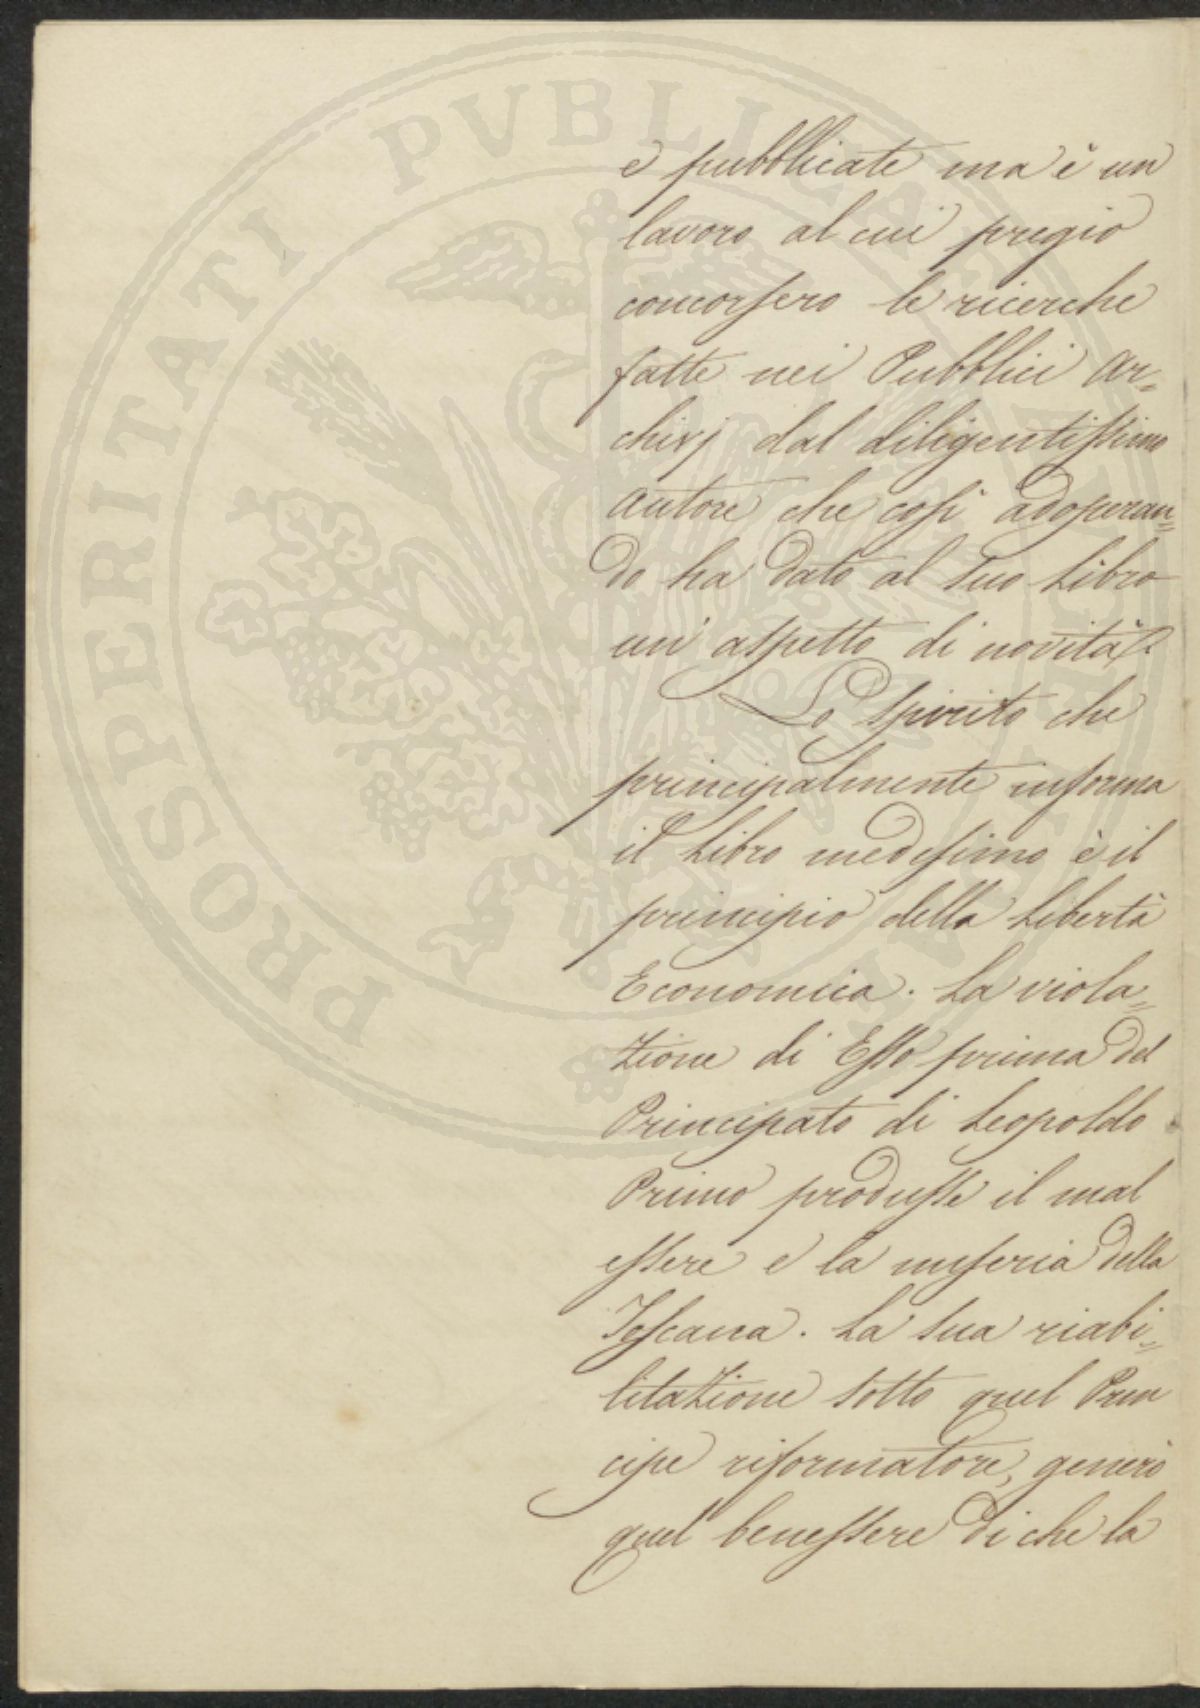 e pubblicate ma è un
lavoro al cui pregio
concorsero le ricerche
fatte nei Pubblici Ar=
chivj dal diligentissimo
autore che così adoperan=
do ha dato al suo Libro
un' aspetto di novità.
Lo spirito che
principalmente informa
il Libro medesimo è il
principio della Libertà
Economica. La viola=
zione di Esso prima del
Principato di Leopoldo
Primo produsse il mal
essere e la miseria della
Toscana. La sua riabi=
litazione sotto quel Prin
cipe riformatore, generò
quel benessere di che la
PROSPERITATI PVBLICAE